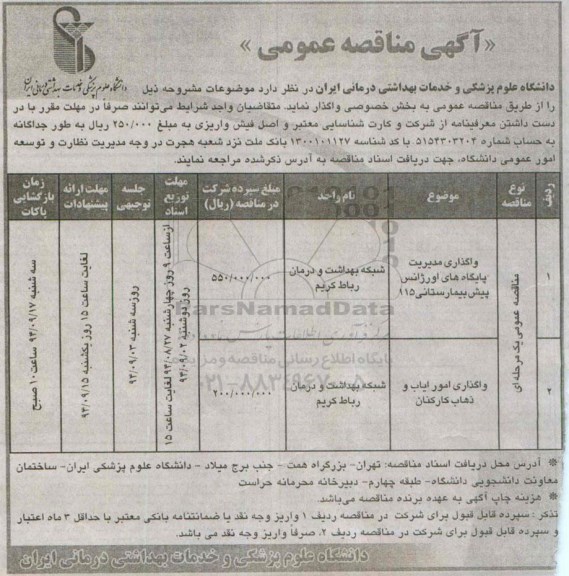 «آگهی مناقصه عمومی»
دانشگاه علوم پزشکی و خدمات بهداشتی درمانی ایران
دانشگاه علوم پزشکی و خدمات بهداشتی درمانی ایران در نظر دارد موضوعات مشروحه ذیل
را از طریق مناقصه عمومی به بخش خصوصی واگذار نماید. متقاضیان واجد شرایط می‌توانند صرفاً در مهلت مقرر با در
دست داشتن معرفینامه از شرکت و کارت شناسایی معتبر و اصل فیش واریزی به مبلغ ۲۵۰/۰۰۰ ریال به طور جداگانه
به حساب شماره ۵۱۵۴۳۰۳۲۰۴ با کد شناسه ۱۳۰۰۱۰۱۱۲۷ بانک ملت نزد شعبه هجرت در وجه مدیریت نظارت و توسعه
امور عمومی دانشگاه، جهت دریافت اسناد مناقصه به آدرس ذکرشده مراجعه نمایند.
ردیف
نوع مناقصه
موضوع
نام واحد
مبلغ سپرده شرکت در مناقصه (ریال)
مهلت توزیع اسناد
جلسه توجیهی
مهلت ارائه پیشنهادات
زمان بازگشایی پاکات
۱
مناقصه عمومی یک مرحله ای
واگذاری مدیریت
پایگاه های اورژانس
پیش بیمارستانی ۱۱۵
شبکه بهداشت و درمان
رباط کریم
۵۵۰/۰۰۰/۰۰۰
از ساعت ۹ روز چهارشنبه ۹۳/۰۸/۲۷ لغایت ساعت ۱۵
روز دوشنبه ۹۳/۰۹/۰۲
روز سه شنبه ۹۳/۰۹/۰۳
لغایت ساعت ۱۵ روز یکشنبه ۹۳/۰۹/۱۵
سه شنبه ۹۳/۰۹/۱۷ ساعت ۱۰ صبح
۲
واگذاری امور ایاب و
ذهاب کارکنان
شبکه بهداشت و درمان
رباط کریم
۲۰۰/۰۰۰/۰۰۰
ParsNamadData
پایگاه اطلاع رسانی مناقصه و مزایده
* آدرس محل دریافت اسناد مناقصه: تهران- بزرگراه همت - جنب برج میلاد - دانشگاه علوم پزشکی ایران- ساختمان
معاونت دانشجویی دانشگاه- طبقه چهارم- دبیرخانه محرمانه حراست
* هزینه چاپ آگهی به عهده برنده مناقصه می‌باشد.
تذکر: سپرده قابل قبول برای شرکت در مناقصه ردیف ۱ واریز وجه نقد یا ضمانتنامه بانکی معتبر با حداقل ۳ ماه اعتبار
و سپرده قابل قبول برای شرکت در مناقصه ردیف ۲، صرفاً واریز وجه نقد می باشد.
دانشگاه علوم پزشکی و خدمات بهداشتی درمانی ایران